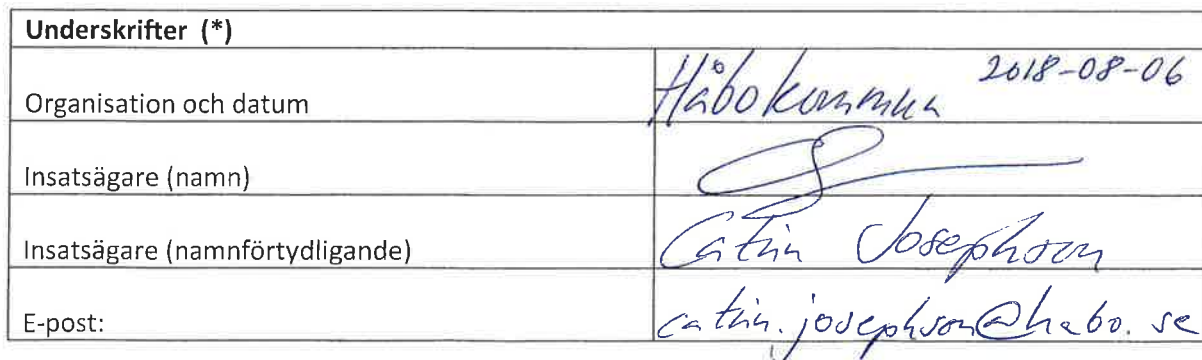 Underskrifter (*)
Organisation och datum Håbo kommun 2018-08-06
Insatsägare (namn)
Insatsägare (namnförtydligande) Catrin Josephson
E-post: catrin.josephson@habo.se